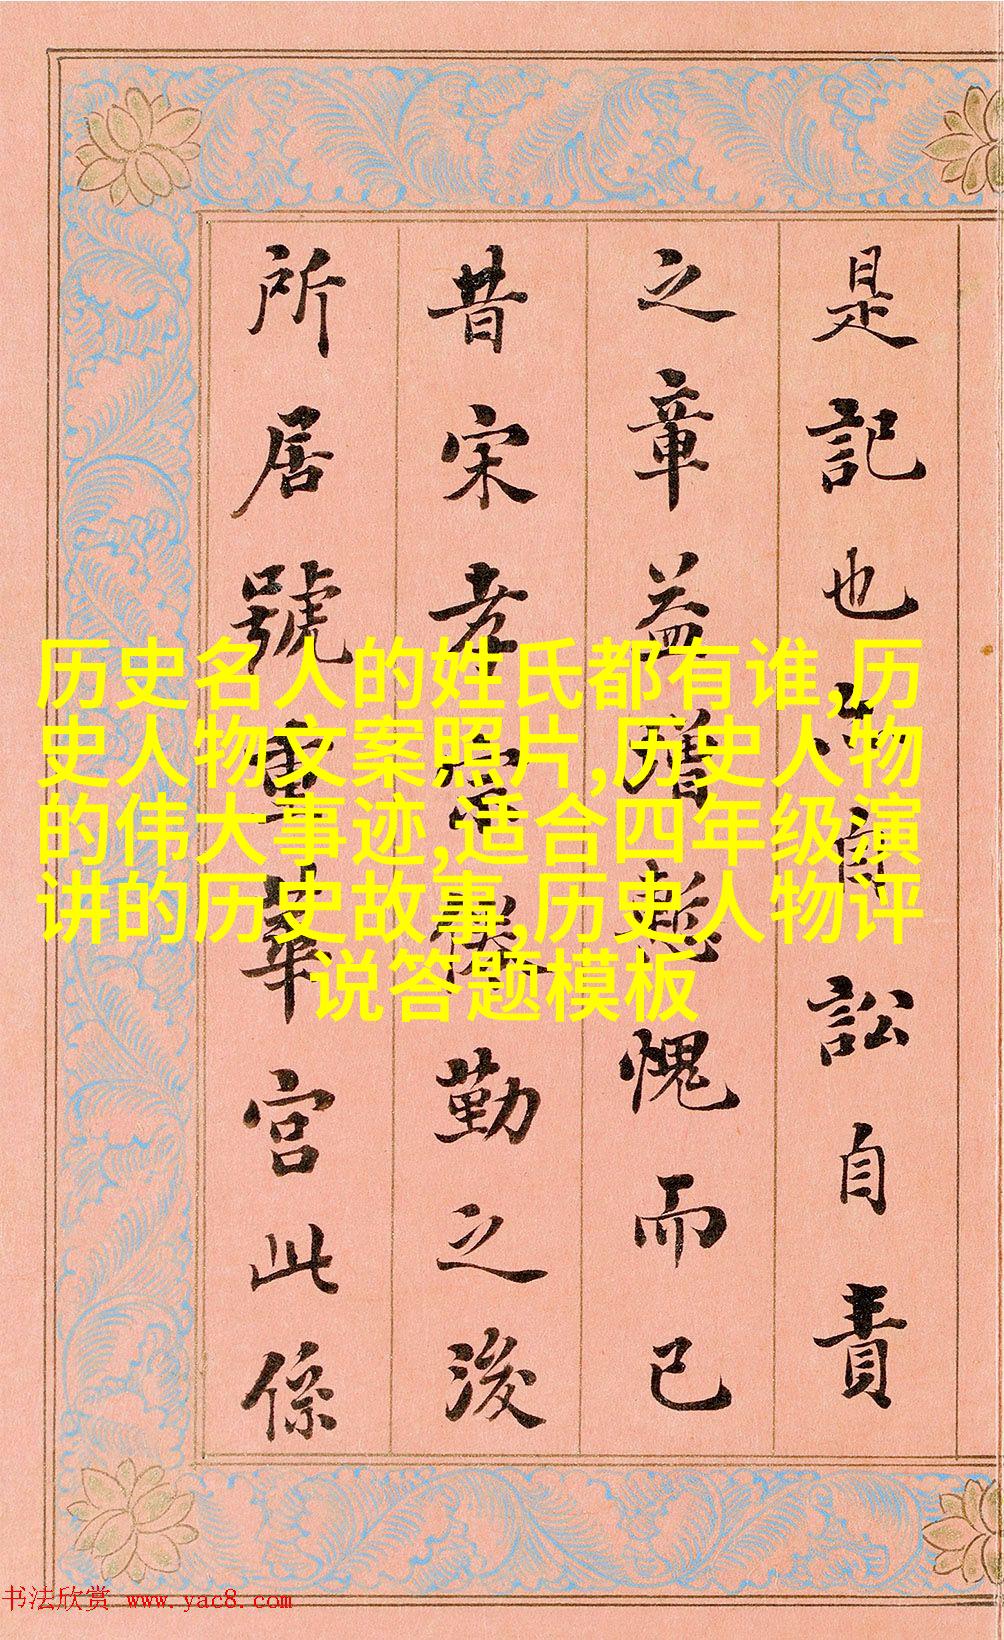 是記也訟自責
之章益增慙愧而已
昔宋孝宗倦勤之後
所居號重華宮此係
历史名人的姓氏都有谁,历
史人物文案照片,历史人物
的伟大事迹,适合四年级演
讲的历史故事,历史人物评
说答题模板
书法欣赏 www.yac8.com